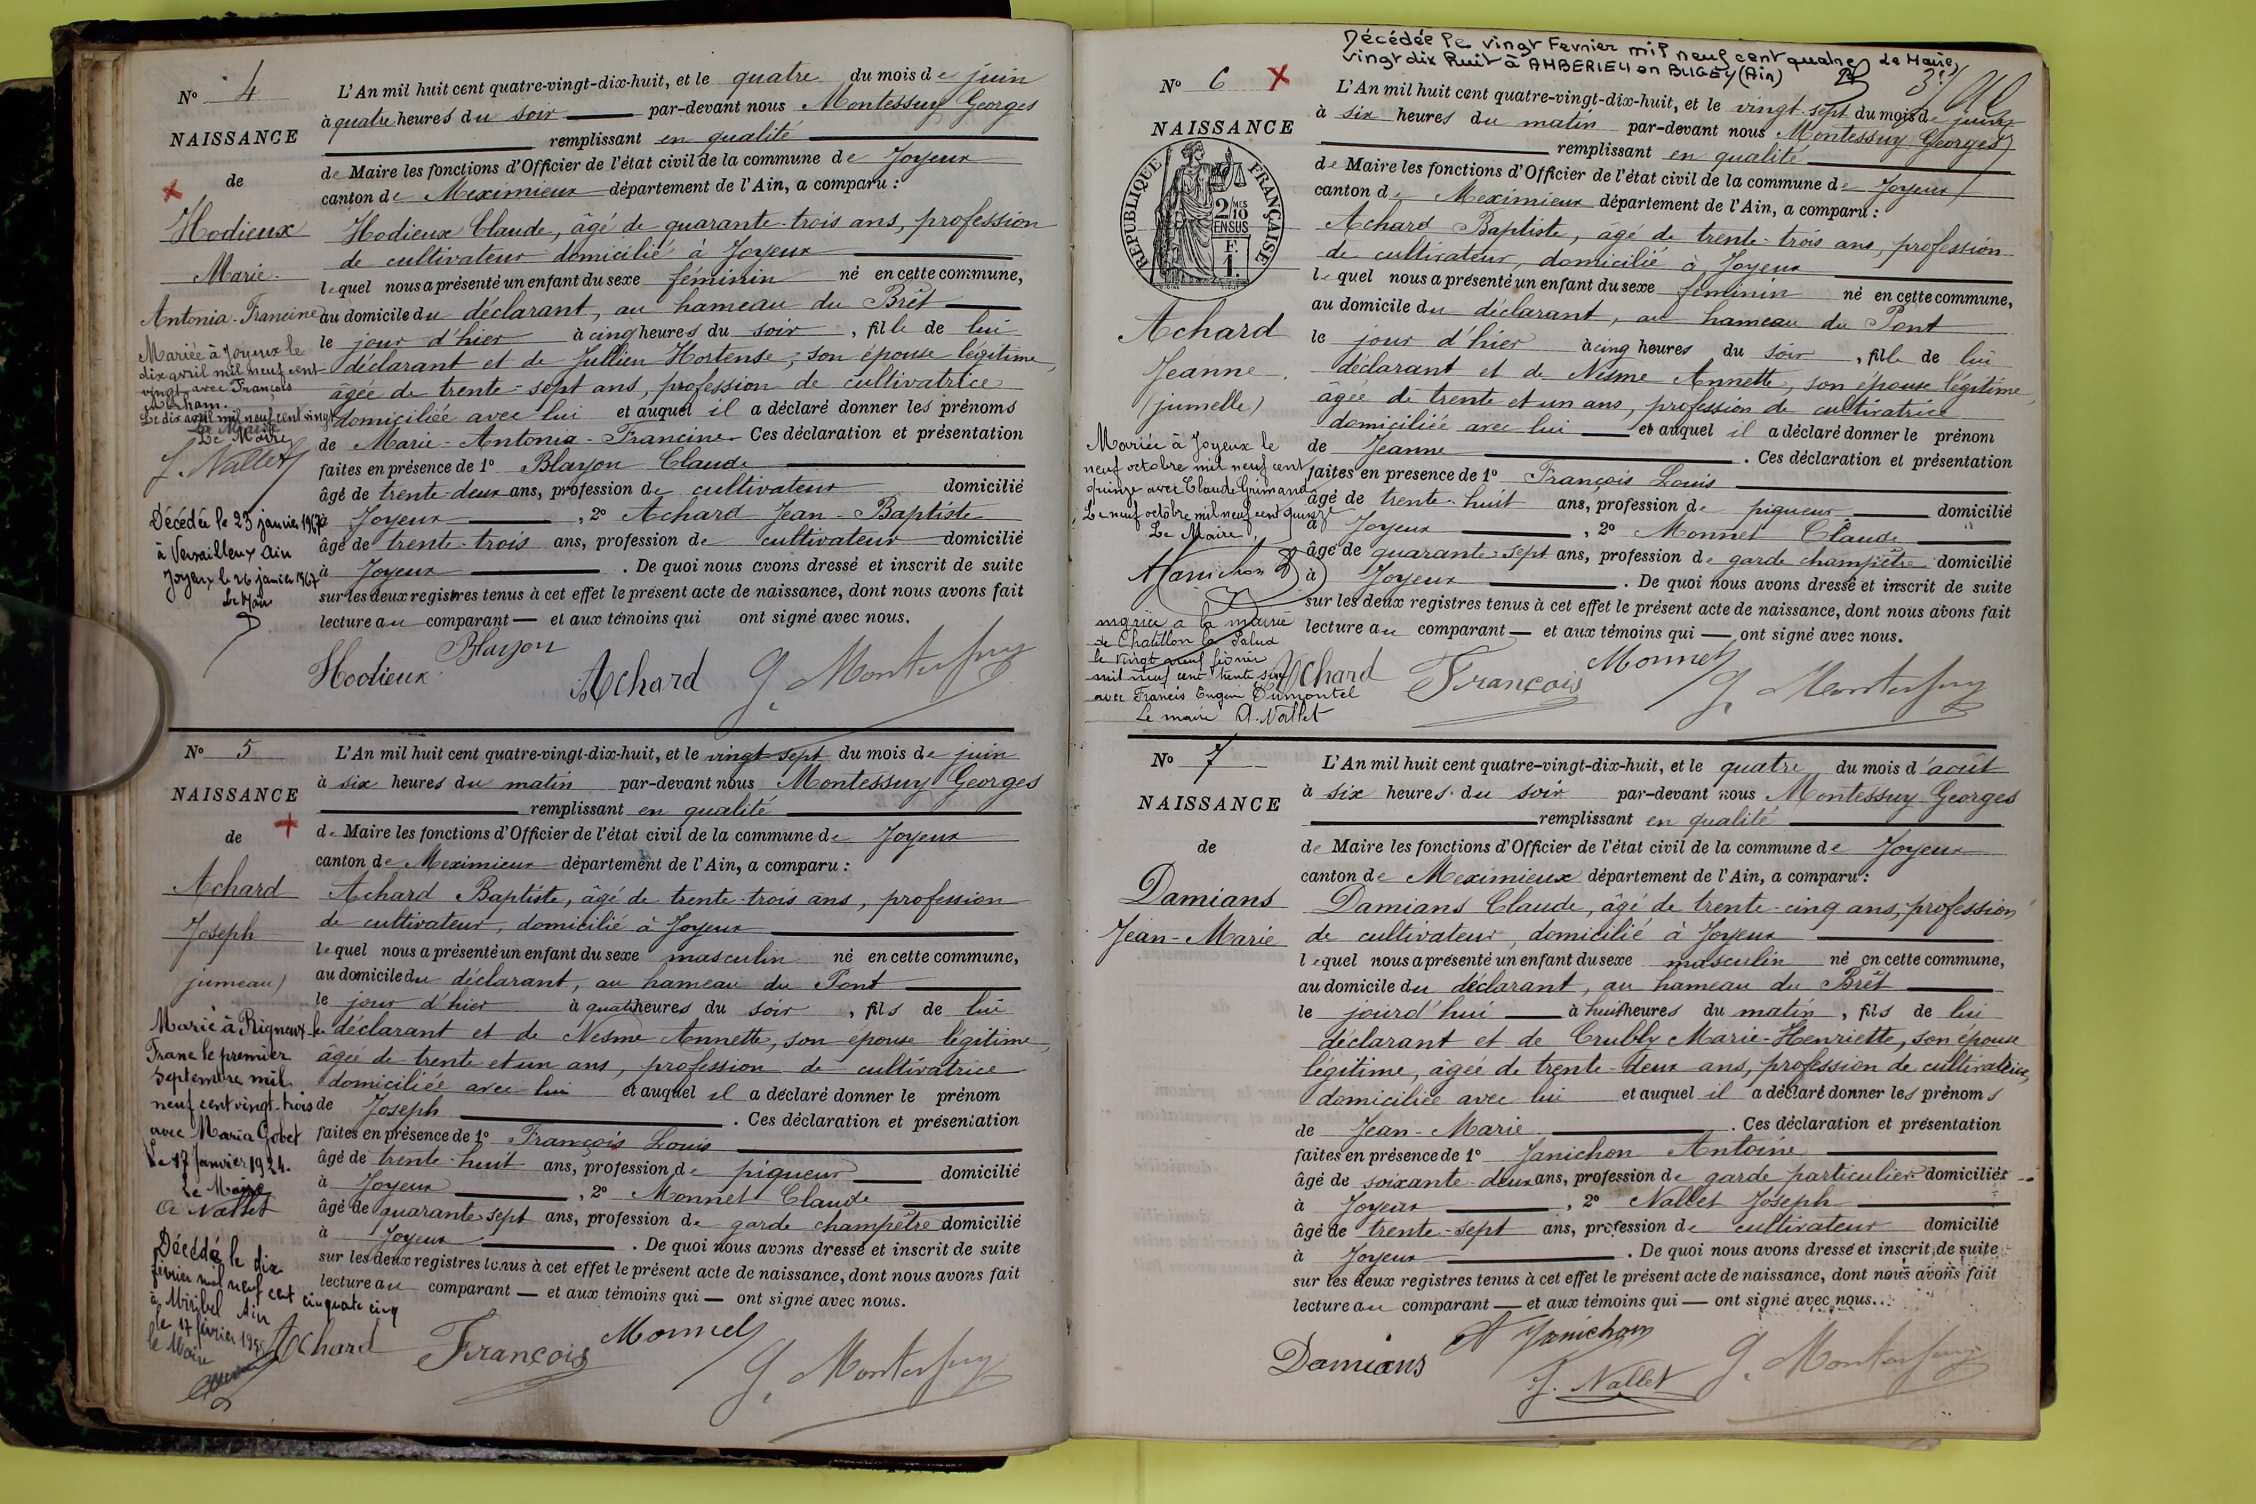 N° 4
NAISSANCE
de
Hodieux
Marie
Antonia-Francine
Mariée à Joyeux le
dix avril mil neuf cent
vingt avec François
Le dix avril mil neuf cent vingt
Le Maire
J. Nallet
Décédée le 23 janvier 1967
à Versailleux Ain
Joyeux le 26 janvier 1967
Le Maire
L'An mil huit cent quatre-vingt-dix-huit, et le quatre du mois de juin
à quatre heures du soir par-devant nous Montessuy Georges
remplissant en qualité
de Maire les fonctions d'Officier de l'état civil de la commune de Joyeux
canton de Meximieux département de l'Ain, a comparu :
Hodieux Claude, âgé de quarante-trois ans, profession
de cultivateur domicilié à Joyeux
lequel nous a présenté un enfant du sexe féminin né en cette commune,
au domicile du déclarant, au hameau du Brêt
le jour d'hier à cinq heures du soir, fille de lui
déclarant et de Jullien Hortense, son épouse légitime,
âgée de trente-sept ans, profession de cultivatrice
domiciliée avec lui et auquel il a déclaré donner les prénoms
de Marie-Antonia-Francine. Ces déclaration et présentation
faites en présence de 1° Blayon Claude
âgé de trente-deux ans, profession de cultivateur domicilié
à Joyeux, 2° Achard Jean-Baptiste
âgé de trente-trois ans, profession de cultivateur domicilié
à Joyeux. De quoi nous avons dressé et inscrit de suite
sur les deux registres tenus à cet effet le présent acte de naissance, dont nous avons fait
lecture au comparant — et aux témoins qui ont signé avec nous.
Hodieux Blayon Achard G. Montessuy
N° 5
NAISSANCE
de
Achard
Joseph
jumeau)
Marié à Rigneux-le
Franc le premier
septembre mil
neuf cent vingt-trois
avec Maria Gobet
Le 17 Janvier 1924.
Le Maire
A Nallet
Décédé le dix
février mil neuf cent cinquante cinq
à Miribel Ain
le 17 février 1955
le Maire
L'An mil huit cent quatre-vingt-dix-huit, et le vingt-sept du mois de juin
à six heures du matin par-devant nous Montessuy Georges
remplissant en qualité
de Maire les fonctions d'Officier de l'état civil de la commune de Joyeux
canton de Meximieux département de l'Ain, a comparu :
Achard Baptiste, âgé de trente-trois ans, profession
de cultivateur, domicilié à Joyeux
lequel nous a présenté un enfant du sexe masculin né en cette commune,
au domicile du déclarant, au hameau du Pont
le jour d'hier à quatre heures du soir, fils de lui
déclarant et de Nesme Annette, son épouse légitime,
âgée de trente et un ans, profession de cultivatrice
domiciliée avec lui et auquel il a déclaré donner le prénom
de Joseph. Ces déclaration et présentation
faites en présence de 1° François Louis
âgé de trente-huit ans, profession de piqueur domicilié
à Joyeux, 2° Monnet Claude
âgé de quarante-sept ans, profession de garde champêtre domicilié
à Joyeux. De quoi nous avons dressé et inscrit de suite
sur les deux registres tenus à cet effet le présent acte de naissance, dont nous avons fait
lecture au comparant — et aux témoins qui — ont signé avec nous.
Achard François Monnet G. Montessuy
Décédée le vingt Fevrier mil neuf cent quatre Le Maire,
vingt dix huit à AMBERIEU en BUGEY (Ain)
N° 6
NAISSANCE
RÉPUBLIQUE FRANÇAISE
2/10 MES EN SUS
F. 1.
Achard
Jeanne
(jumelle)
Mariée à Joyeux le
neuf octobre mil neuf cent
quinze avec Claude Grimand
Le neuf octobre mil neuf cent quinze
Le Maire,
A Janichon
mariée a la mairie
de Chatillon la Palud
le vingt neuf février
mil neuf cent trente six
avec Francis Eugène Dumontel
Le maire A. Nallet
L'An mil huit cent quatre-vingt-dix-huit, et le vingt-sept du mois de juin
à six heures du matin par-devant nous Montessuy Georges
remplissant en qualité
de Maire les fonctions d'Officier de l'état civil de la commune de Joyeux
canton de Meximieux département de l'Ain, a comparu :
Achard Baptiste, âgé de trente-trois ans, profession
de cultivateur, domicilié à Joyeux
lequel nous a présenté un enfant du sexe féminin né en cette commune,
au domicile du déclarant, au hameau du Pont
le jour d'hier à cinq heures du soir, fille de lui
déclarant et de Nesme Annette, son épouse légitime,
âgée de trente et un ans, profession de cultivatrice
domiciliée avec lui et auquel il a déclaré donner le prénom
de Jeanne. Ces déclaration et présentation
faites en présence de 1° François Louis
âgé de trente-huit ans, profession de piqueur domicilié
à Joyeux, 2° Monnet Claude
âgé de quarante-sept ans, profession de garde champêtre domicilié
à Joyeux. De quoi nous avons dressé et inscrit de suite
sur les deux registres tenus à cet effet le présent acte de naissance, dont nous avons fait
lecture au comparant — et aux témoins qui — ont signé avec nous.
Achard François Monnet G. Montessuy
N° 7
NAISSANCE
de
Damians
Jean-Marie
L'An mil huit cent quatre-vingt-dix-huit, et le quatre du mois d'août
à six heures du soir par-devant nous Montessuy Georges
remplissant en qualité
de Maire les fonctions d'Officier de l'état civil de la commune de Joyeux
canton de Meximieux département de l'Ain, a comparu :
Damians Claude, âgé de trente-cinq ans, profession
de cultivateur, domicilié à Joyeux
lequel nous a présenté un enfant du sexe masculin né en cette commune,
au domicile du déclarant, au hameau du Brêt
le jourd'hui à huit heures du matin, fils de lui
déclarant et de Crubly Marie-Henriette, son épouse
légitime, âgée de trente-deux ans, profession de cultivatrice,
domiciliée avec lui et auquel il a déclaré donner les prénoms
de Jean-Marie. Ces déclaration et présentation
faites en présence de 1° Janichon Antoine
âgé de soixante-deux ans, profession de garde particulier domicilié
à Joyeux, 2° Nallet Joseph
âgé de trente-sept ans, profession de cultivateur domicilié
à Joyeux. De quoi nous avons dressé et inscrit de suite
sur les deux registres tenus à cet effet le présent acte de naissance, dont nous avons fait
lecture au comparant — et aux témoins qui — ont signé avec nous.
Damians A Janichon J. Nallet G. Montessuy